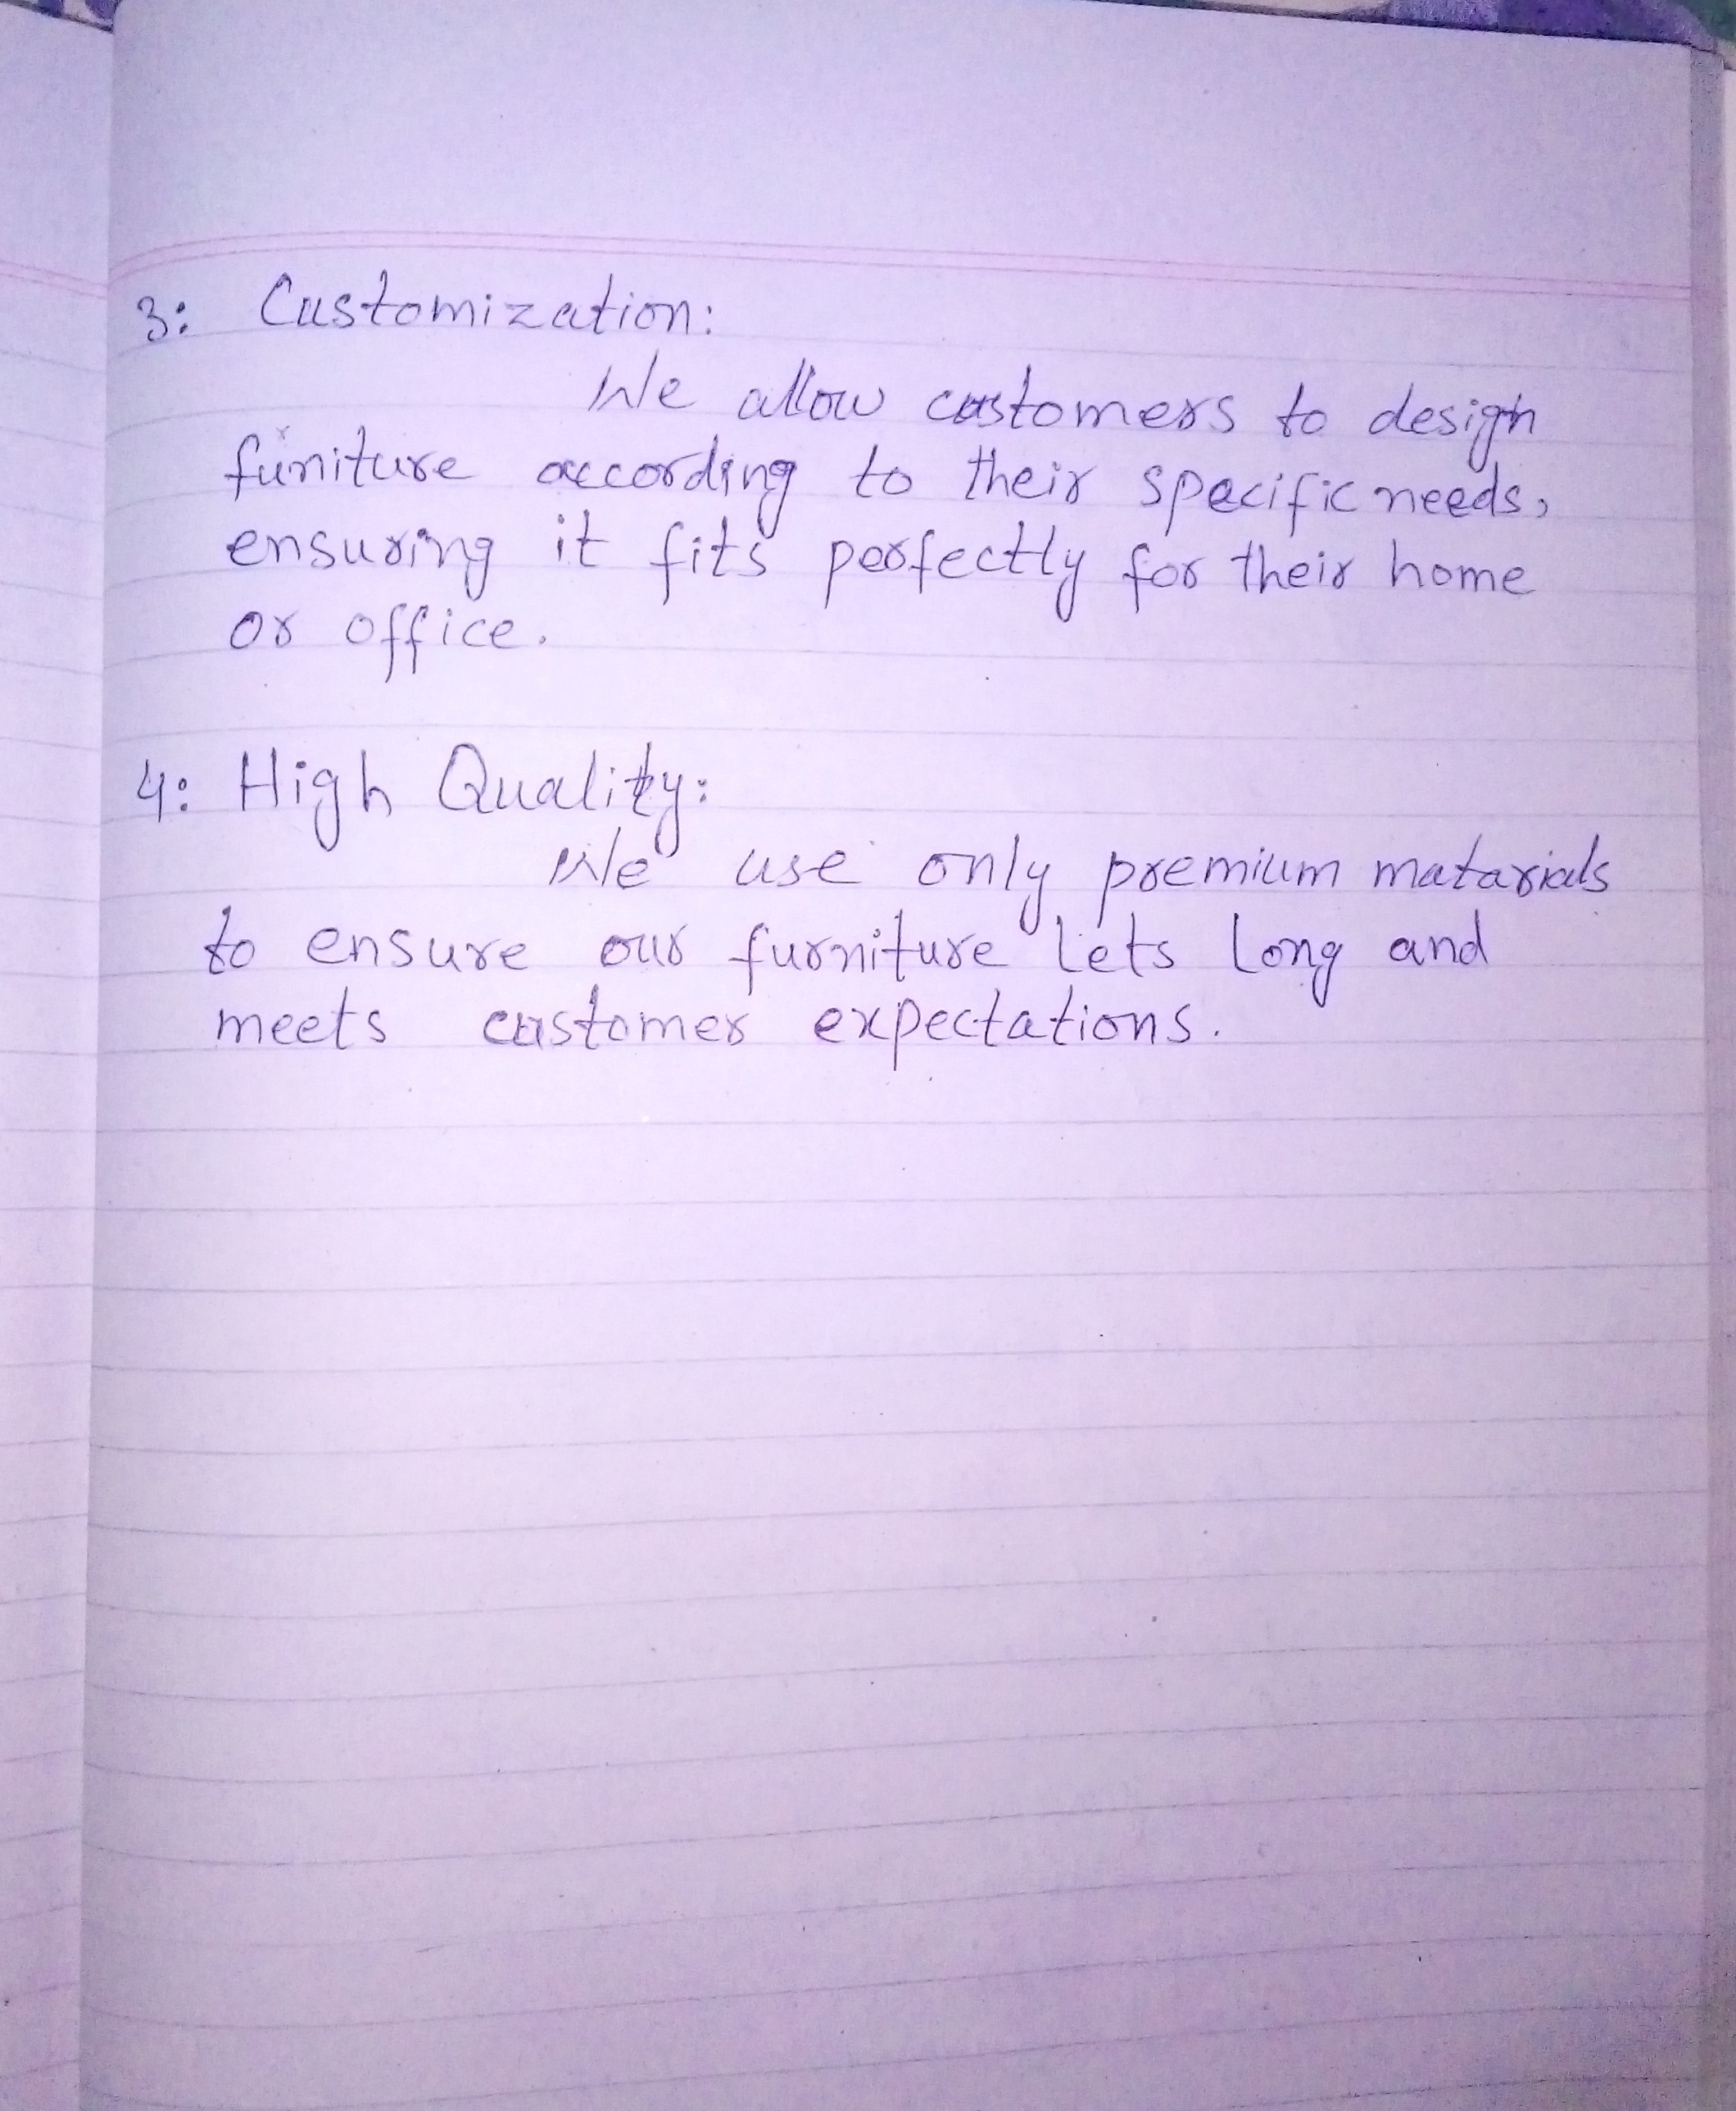 3: Customization:
We allow customers to design
furniture according to their specific needs,
ensuring it fits perfectly for their home
or office.
4: High Quality:
We use only premium matarials
to ensure our furniture lets long and
meets customer expectations.